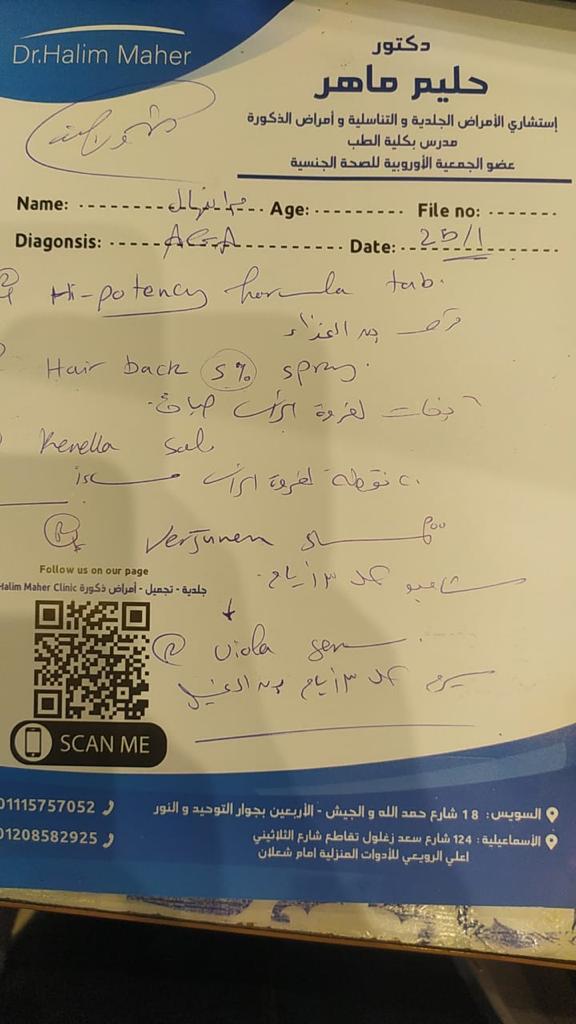 Dr.Halim Maher
دكتور
حليم ماهر
إستشاري الأمراض الجلدية و التناسلية و أمراض الذكورة
مدرس بكلية الطب
عضو الجمعية الأوروبية للصحة الجنسية
Name: Age: File no:
Diagonsis: AGA Date: 25/1
Hi-potency formula tab.
قرص بعد الغذاء
Hair back 5% spray.
بخات لفروة الرأس صباحًا
sol
نقطة لفروة الرأس مساءً
شامبو كل ٣ أيام
Viola
سيرم كل ٣ أيام بعد الغسيل
Follow us on our page
Halim Maher Clinic جلدية - تجميل - أمراض ذكورة
SCAN ME
01115757052
01208582925
السويس: 18 شارع حمد الله و الجيش - الأربعين بجوار التوحيد و النور
الأسماعيلية: 124 شارع سعد زغلول تقاطع شارع الثلاثيني
اعلي الرويعي للأدوات المنزلية امام شعلان